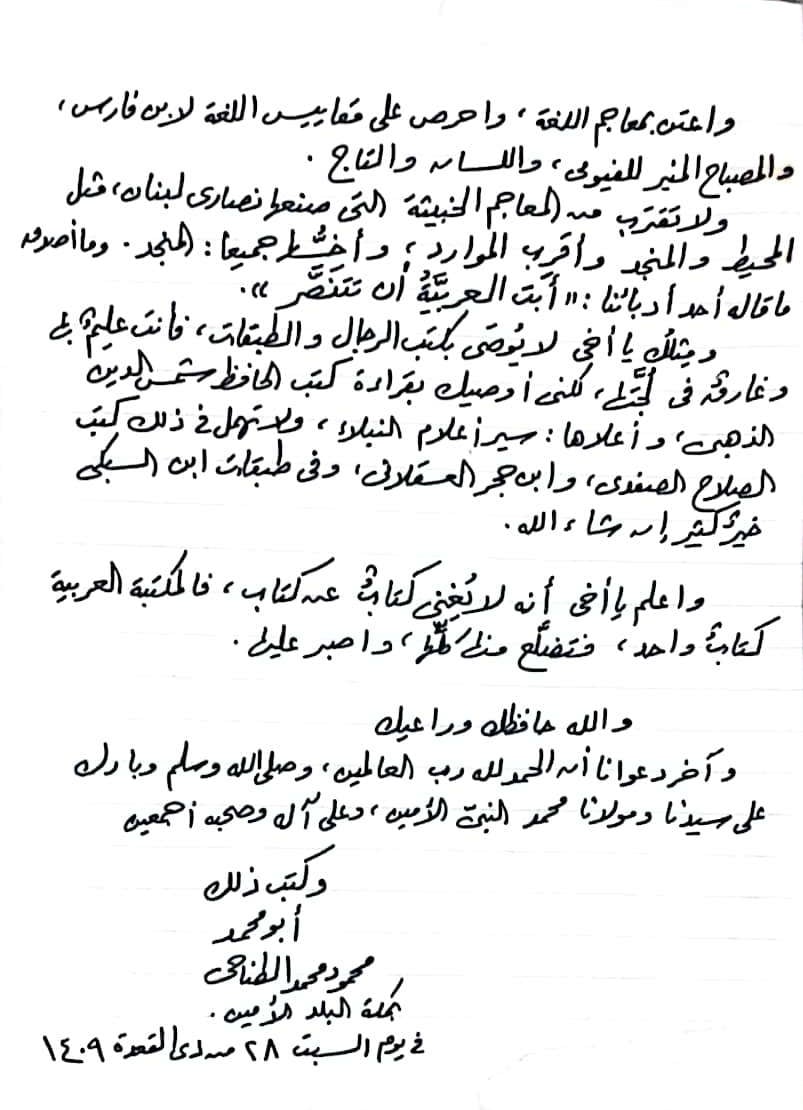 واعتن بمعاجم اللغة، واحرص على مقاييس اللغة لابن فارس،
والمصباح المنير للفيومى، واللسان والتاج.
ولا تقترب من المعاجم الخبيثة التى صنعها نصارى لبنان، مثل
المحيط والمنجد وأقرب الموارد، وأخسُّها جميعا: المنجد. وما أصدق
ما قاله أحد أدبائنا: «أبَت العربيَّةُ أن تتَنَصَّر».
ومثلك يا أخى لا يُوصَى بكتب الرجال والطبقات، فأنت عليمٌ بها
وغارقٌ فى لُجَّتها، لكنى أوصيك بقراءة كتب الحافظ شمس الدين
الذهبى، وأعلاها: سير أعلام النبلاء، ولا تهمل فى ذلك كتب
الصلاح الصفدى، وابن حجر العسقلانى، وفى طبقات ابن السبكى
خيرٌ كثير إن شاء الله.
واعلم يا أخى أنه لا يُغنِى كتابٌ عن كتاب، فالمكتبة العربية
كتابٌ واحد، فتضلَّع منها كلِّها، واصبر عليها.
والله حافظك وراعيك
وآخر دعوانا أن الحمد لله رب العالمين، وصلى الله وسلم وبارك
على سيدنا ومولانا محمد النبىّ الأمين، وعلى آله وصحبه أجمعين
وكتب ذلك
أبو محمد
محمود محمد الطناحى
بمكة البلد الأمين.
فى يوم السبت ٢٨ من ذى القعدة ١٤٠٩